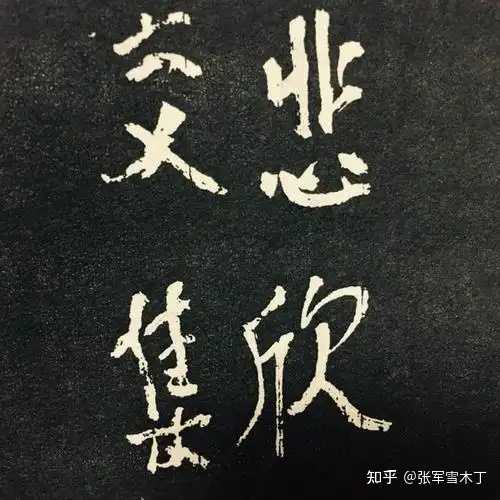 悲欣
交集
知乎 @张军雪木丁